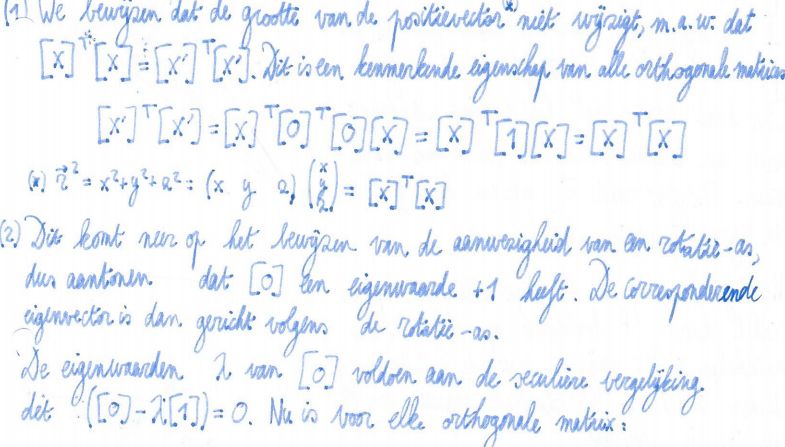 (1) We bewijzen dat de grootte van de positievector (*) niet wijzigt, m.a.w. dat
[x]ᵀ[x] = [x']ᵀ[x']. Dit is een kenmerkende eigenschap van alle orthogonale matrices
[x']ᵀ[x'] = [x]ᵀ[O]ᵀ[O][x] = [x]ᵀ[1][x] = [x]ᵀ[x]
(*) r⃗² = x²+y²+z² = (x y z) (x y z) = [x]ᵀ[x]
(2) Dit komt neer op het bewijzen van de aanwezigheid van een rotatie-as,
dus aantonen dat [O] een eigenwaarde +1 heeft. De corresponderende
eigenvector is dan gericht volgens de rotatie-as.
De eigenwaarden λ van [O] voldoen aan de seculiere vergelijking
det ([O] - λ[1]) = 0. Nu is voor elke orthogonale matrix: